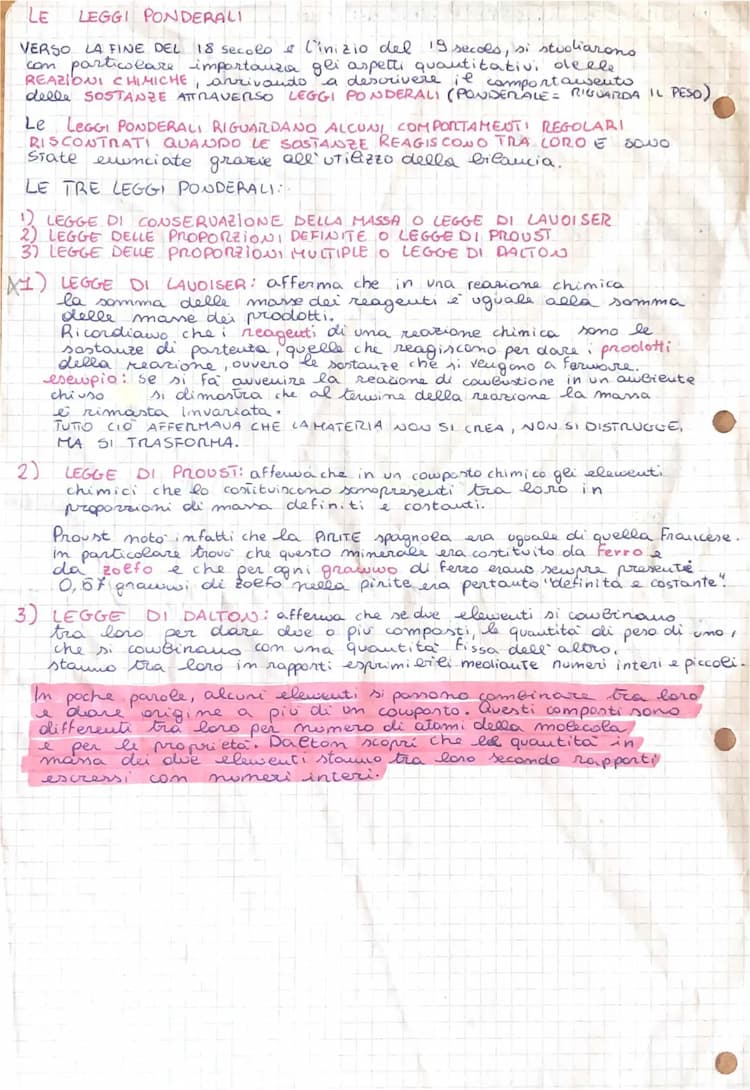 LE LEGGI PONDERALI
VERSO LA FINE DEL 18 secolo e l'inizio del 19 secolo, si studiarono
con particolare importanza gli aspetti quantitativi delle
REAZIONI CHIMICHE, arrivando a descrivere il comportamento
delle SOSTANZE ATTRAVERSO LEGGI PONDERALI (PONDERALE = RIGUARDA IL PESO)
Le LEGGI PONDERALI RIGUARDANO ALCUNI COMPORTAMENTI REGOLARI
RISCONTRATI QUANDO LE SOSTANZE REAGISCONO TRA LORO E sono
state enunciate grazie all'utilizzo della bilancia.
LE TRE LEGGI PONDERALI:
1) LEGGE DI CONSERVAZIONE DELLA MASSA O LEGGE DI LAVOISER
2) LEGGE DELLE PROPORZIONI DEFINITE O LEGGE DI PROUST
3) LEGGE DELLE PROPORZIONI MULTIPLE O LEGGE DI DALTON
1) LEGGE DI LAVOISER: afferma che in una reazione chimica
la somma delle masse dei reagenti è uguale alla somma
delle masse dei prodotti.
Ricordiamo che i reagenti di una reazione chimica sono le
sostanze di partenza, quelle che reagiscono per dare i prodotti
della reazione, ovvero le sostanze che si vengono a formare.
esempio: se si fa avvenire la reazione di combustione in un ambiente
chiuso si dimostra che al termine della reazione la massa
è rimasta invariata.
TUTTO CIÒ AFFERMAVA CHE LA MATERIA NON SI CREA, NON SI DISTRUGGE,
MA SI TRASFORMA.
2) LEGGE DI PROUST: afferma che in un composto chimico gli elementi
chimici che lo costituiscono sono presenti tra loro in
proporzioni di massa definiti e costanti.
Proust notò infatti che la PIRITE spagnola era uguale di quella Francese.
In particolare trovò che questo minerale era costituito da Ferro e
da zolfo e che per ogni grammo di ferro erano sempre presente
0,87 grammi di zolfo nella pirite era pertanto "definita e costante".
3) LEGGE DI DALTON: afferma che se due elementi si combinano
tra loro per dare due o più composti, le quantità di peso di uno,
che si combinano con una quantità fissa dell'altro,
stanno tra loro in rapporti esprimibili mediante numeri interi e piccoli.
In poche parole, alcuni elementi si possono combinare tra loro
e dare origine a più di un composto. Questi composti sono
differenti tra loro per numero di atomi della molecola
e per le proprietà. Dalton scoprì che le quantità in
massa dei due elementi stanno tra loro secondo rapporti
espressi con numeri interi.